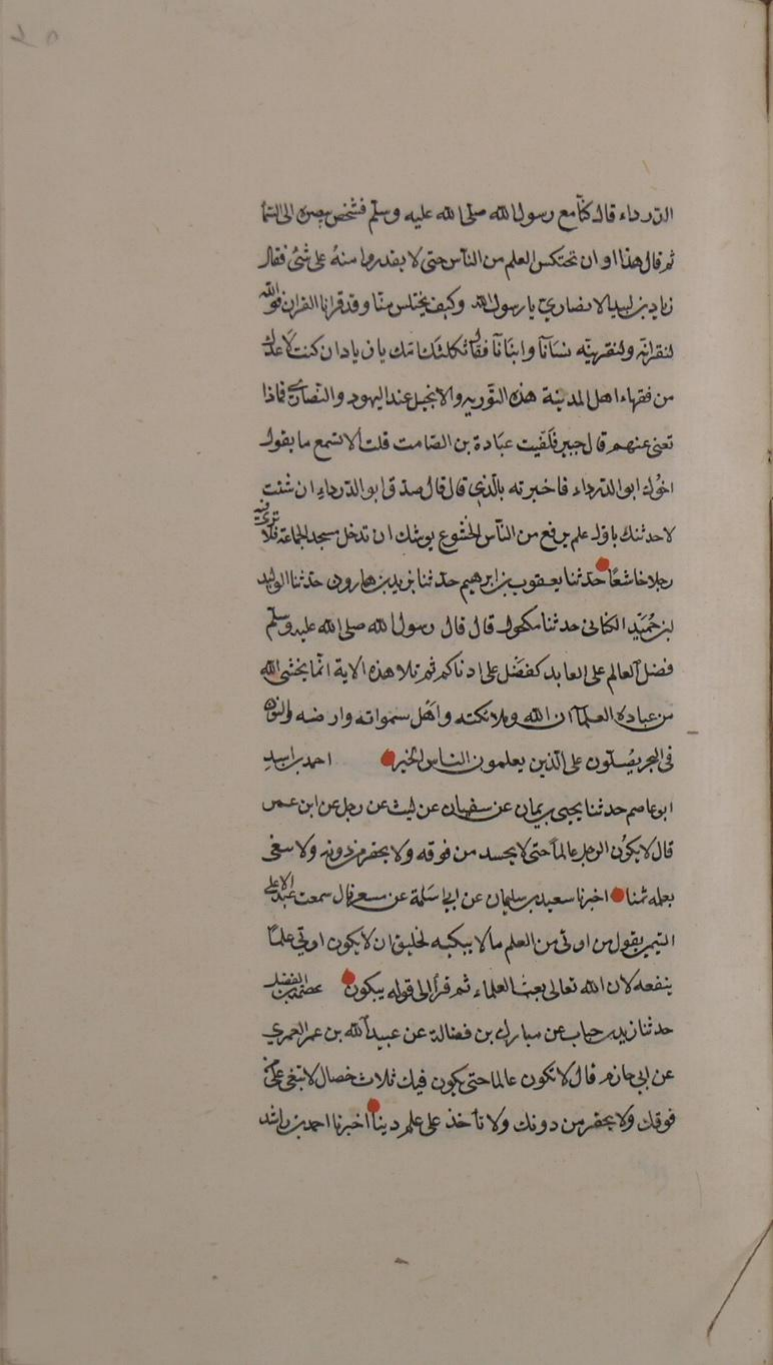 الدرداء قال كنا مع رسول الله صلى الله عليه وسلم فشخص ببصره الى السما
ثم قال هذا اوان تختلس العلم من الناس حتى لا يقدروا منه على شئ فقال
زياد بن لبيد الانصاري يا رسول الله وكيف يختلس منا وقد قرانا القران فوالله
لنقرانه ولنقرينه نسانا وابنانا فقال ثكلتك امك يا زياد ان كنت لاعدك
من فقهاء اهل المدينة هذه التورية والانجيل عند اليهود والنصارى فماذا
تغني عنهم قال جبير فلقيت عبادة بن الصامت قلت الا تسمع ما يقول
اخوك ابو الدرداء فاخبرته بالذي قال قال صدق ابو الدرداء ان شئت
لاحدثنك باول علم يرفع من الناس الخشوع يوشك ان تدخل مسجد الجماعة فلا ترى فيه
رجلا خاشعا حدثنا يعقوب بن ابرهيم حدثنا يزيد بن هارون حدثنا الوليد
بن جميد الكنانى حدثنا مكحول قال قال رسول الله صلى الله عليه وسلم
فضل العالم على العابد كفضل على ادناكم ثم تلا هذه الاية انما يخشى الله
من عباده العلما ان الله وملائكته واهل سمواته وارضه والنون
في البحر يصلون على الذين يعلمون الناس الخير احمد بن اسد
ابو عاصم حدثنا يحيى بن يمان عن سفيان عن ليث عن رجل عن ابن عمر
قال لا يكون الرجل عالما حتى لا يحسد من فوقه ولا يحقر من دونه ولا يبتغى
بعلمه ثمنا اخبرنا سعيد بن سليمان عن ابي اسامة عن مسعر قال سمعت عبد الاعلى
التيمي يقول من اوتى من العلم ما لا يبكيه لخليق ان لا يكون اوتي علما
ينفعه لان الله تعالى بعث العلماء ثم قرأ الى قوله يبكون عصمة بن الفضل
حدثنا زيد بن حباب عن مبارك بن فضالة عن عبيد الله بن عمر العمري
عن ابي حازم قال لا تكون عالما حتى يكون فيك ثلاث خصال لا تبغى على من
فوقك ولا يحقر من دونك ولا تأخذ على علم دينا اخبرنا احمد بن راشد